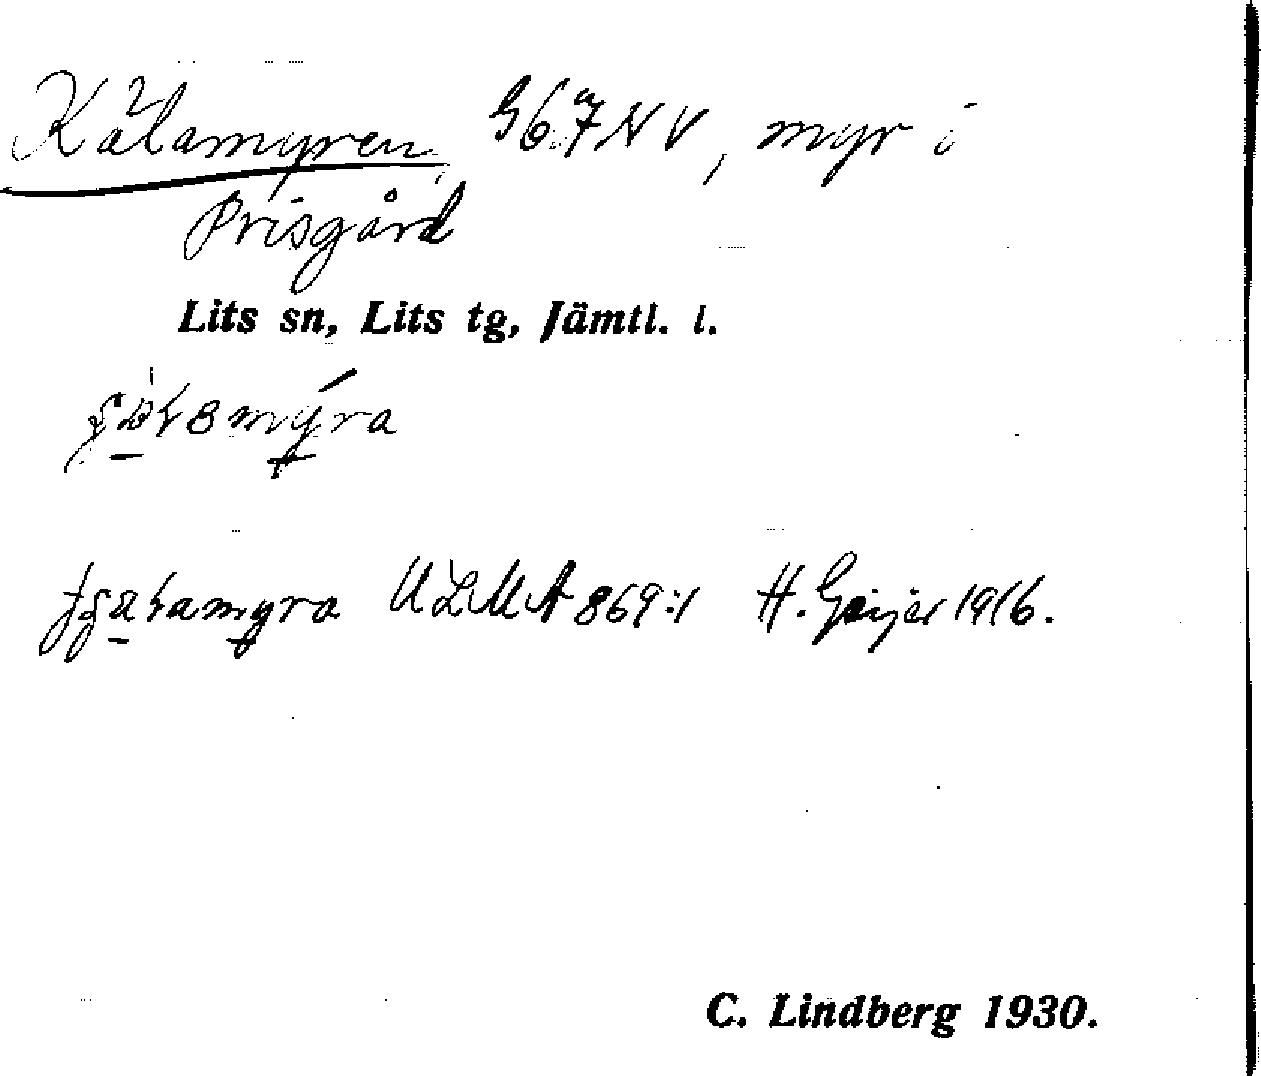 Kälamyren G67NV, myr i
Prisgård
Lits sn, Lits tg, Jämtl. l.
ULMA 869:1 H. Geijer 1916.
C. Lindberg 1930.